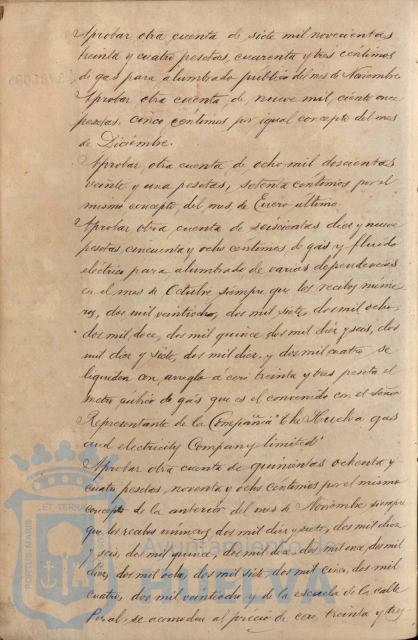 Aprobar otra cuenta de siete mil novecientas
treinta y cuatro pesetas, cuarenta y tres centimos
de gas para alumbrado publico del mes de Noviembre
Aprobar otra cuenta de nueve mil ciento once
pesetas, cinco centimos por igual concepto del mes
de Diciembre.
Aprobar otra cuenta de ocho mil doscientas
veinte y una pesetas, setenta centimos por el
mismo concepto del mes de Enero ultimo.
Aprobar otra cuenta de seiscientas diez y nueve
pesetas, cincuenta y ocho centimos de gas y fluido
eléctrico para alumbrado de varias dependencias
en el mes de Octubre, siempre que los recibos nume-
ros, dos mil veintiocho, dos mil siete, dos mil ocho,
dos mil doce, dos mil quince dos mil diez y seis, dos
mil diez y siete, dos mil diez, y dos mil cuatro se
liquiden con arreglo á cero treinta y tres peseta el
metro cúbico de gas que es el convenido con el señor
Representante de la Compañia "the Huelva gas
and electricity Company limited"
Aprobar otra cuenta de quinientas ochenta y
cuatro pesetas, noventa y ocho centimos por el mismo
concepto de la anterior del mes de Noviembre siempre
que los recibos números, dos mil diez y siete, dos mil diez
y seis, dos mil quince, dos mil doce dos mil once, dos mil
diez, dos mil ocho, dos mil siete, dos mil cinco, dos mil
cuatro, dos mil veintiocho y de la escuela de la calle
Peral, se acomoden al precio de cero, treinta y tres
PORTUS MARIS ET TERRAE
Ayuntamiento de
HUELVA